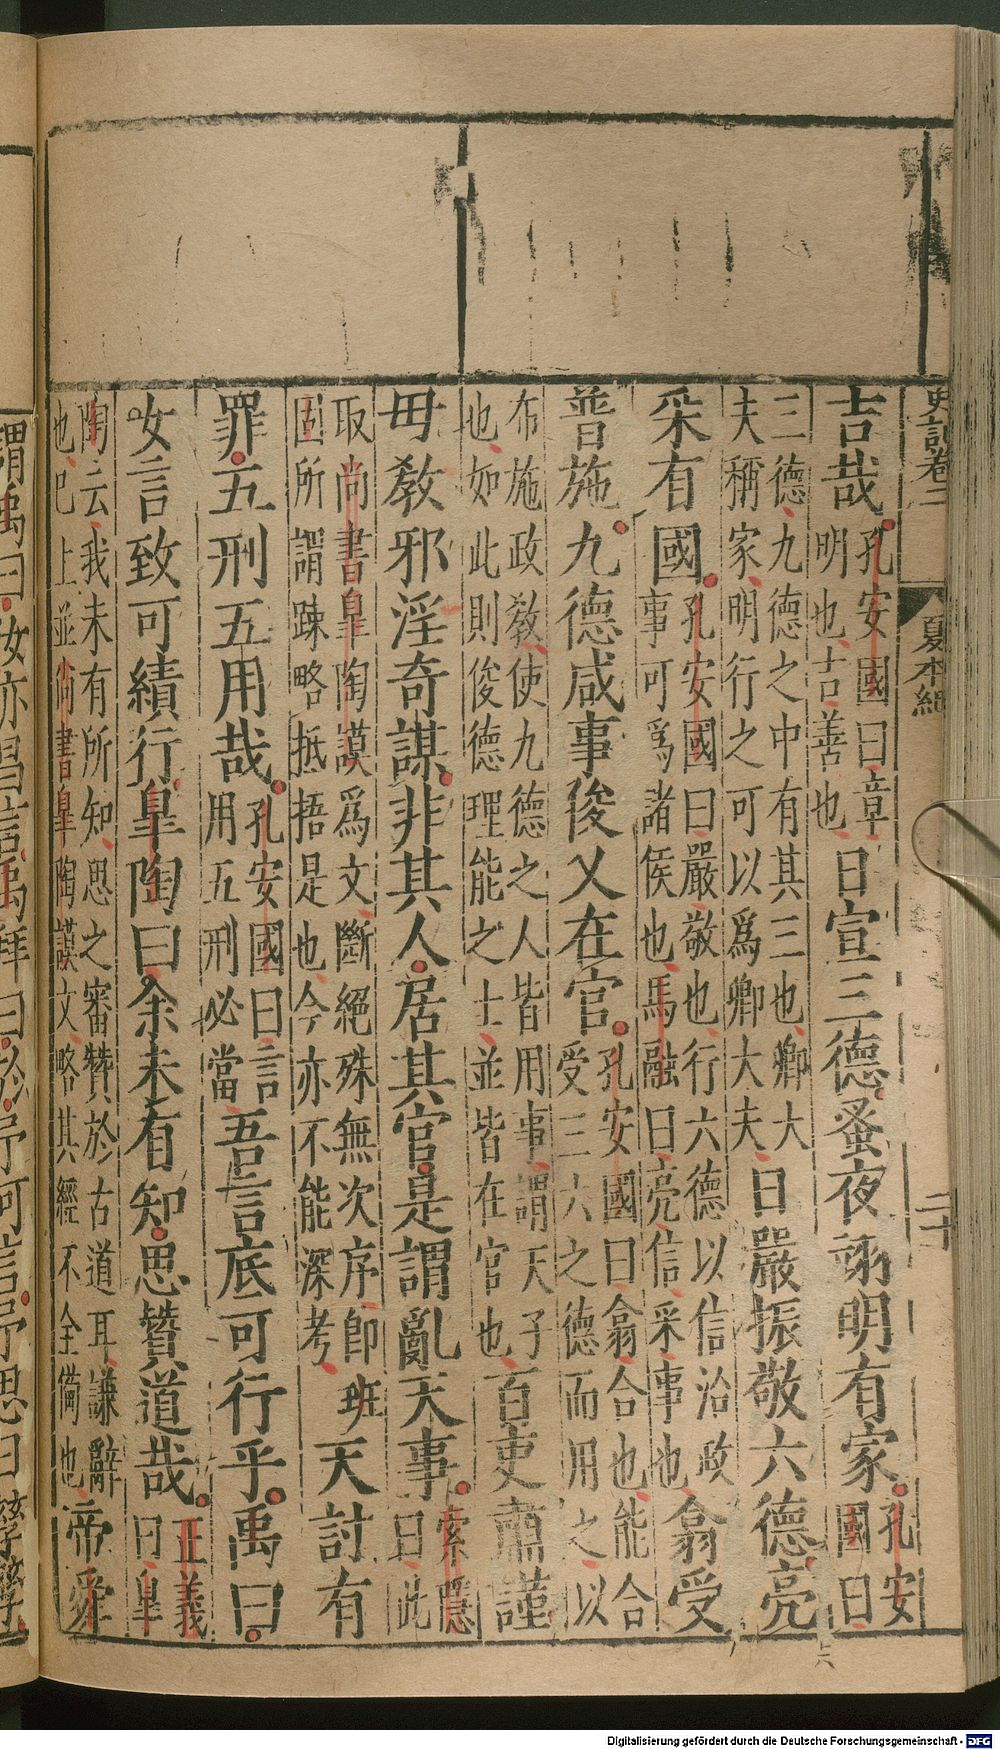 史記卷二 夏本紀 二十
吉哉孔安國曰章明也吉善也日宣三德蚤夜翊明有家孔安國曰
三德九德之中有其三也卿大夫稱家明行之可以爲卿大夫日嚴振敬六德亮
采有國孔安國曰嚴敬也行六德以信治政事可爲諸侯也馬融曰亮信采事也翕受
普施九德咸事俊乂在官孔安國曰翕合也能合受三六之德而用之以
布施政教使九德之人皆用事謂天子也如此則俊德理能之士並皆在官也百吏肅謹
毋教邪淫奇謀非其人居其官是謂亂天事索隱曰此
取尚書皐陶謨爲文斷絕殊無次序即班固所謂踈略抵捂是也今亦不能深考天討有
罪五刑五用哉孔安國曰言用五刑必當吾言底可行乎禹曰
女言致可績行皐陶曰余未有知思贊道哉正義曰皐
陶云我未有所知思之審贊於古道耳謙辭也已上並尚書皐陶謨文略其經不全備也帝舜
謂禹曰女亦昌言禹拜曰於予何言予思日孳孳
Digitalisierung gefördert durch die Deutsche Forschungsgemeinschaft - DFG